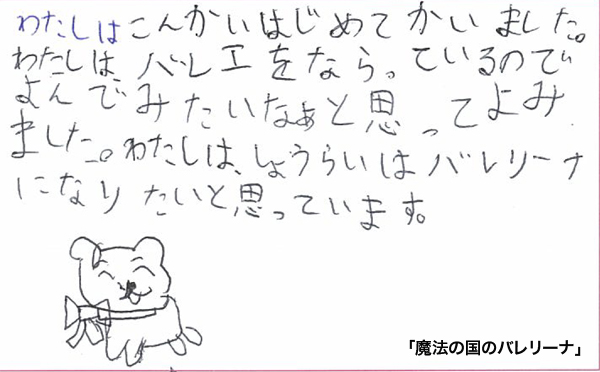 わたしはこんかいはじめてかいました。
わたしは、バレエをならっているので
よんでみたいなぁと思ってよみ
ました。わたしは、しょうらいはバレリーナ
になりたいと思っています。
「魔法の国のバレリーナ」